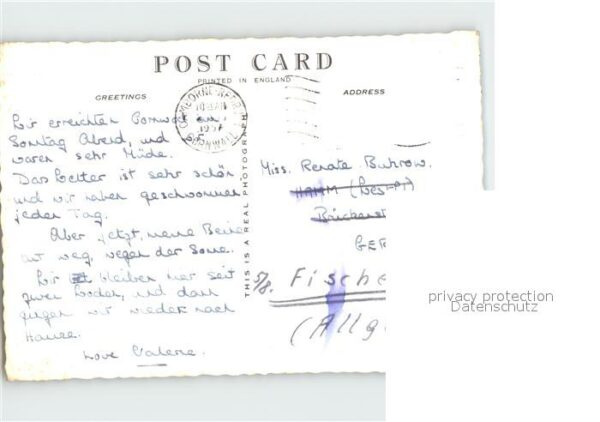 POST CARD
PRINTED IN ENGLAND
GREETINGS
ADDRESS
CAMBORNE-REDRUTH
1957
CORNWALL
THIS IS A REAL PHOTOGRAPH
Wir erreichten Cornwall am
Sonntag Abend, und
waren sehr Müde.
Das Wetter ist sehr schön
und wir haben geschwommen
jeden Tag.
Aber jetzt, meine Beine
weg, wegen der Sonne.
Wir bleiben hier seit
zwei Woden, und dann
gingen wir wieder nach
Hause.
Love Valerie.
Miss. Renate Buhrow.
HAMM (West
Brückenst
GER
5/8. Fische
(Allg
privacy protection
Datenschutz